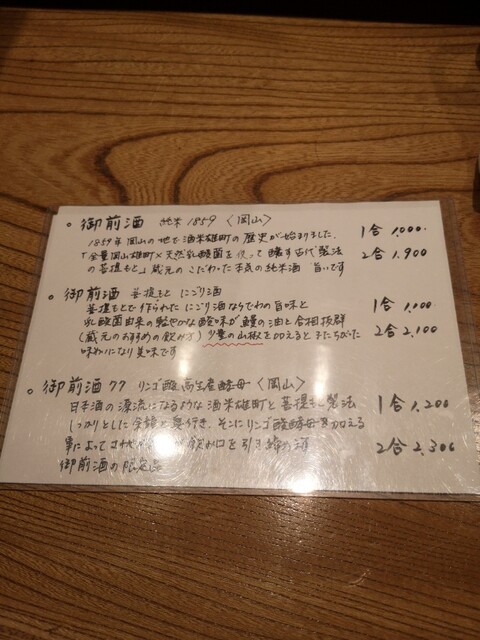 。御前酒 純米 1859 〈岡山〉
1859年 岡山の地で 酒米雄町の歴史が始まりました。 1合 1,000.
「全量岡山雄町×天然乳酸菌を使って醸す古代製法 2合 1,900
の菩提もと」蔵元のこだわった本気の純米酒 旨いです
。御前酒 菩提もと にごり酒
菩提もとで作られた にごり酒ならでわの旨味と 1合 1,100
乳酸菌由来の軽やかな酸味が鰻の油と合相抜群
(蔵元のおすすめの飲み方) 少量の山椒を加えると 2合 2,100
味わいになり美味です
。御前酒 リンゴ酸高生産酵母〈岡山〉
日本酒の源流になるような 酒米雄町と菩提もと製法 1合 1,200
しっかりとした 奥行き、そこにリンゴ酸酵母を加える
事によって 飲み口を引き 2合 2,300
御前酒の限定酒